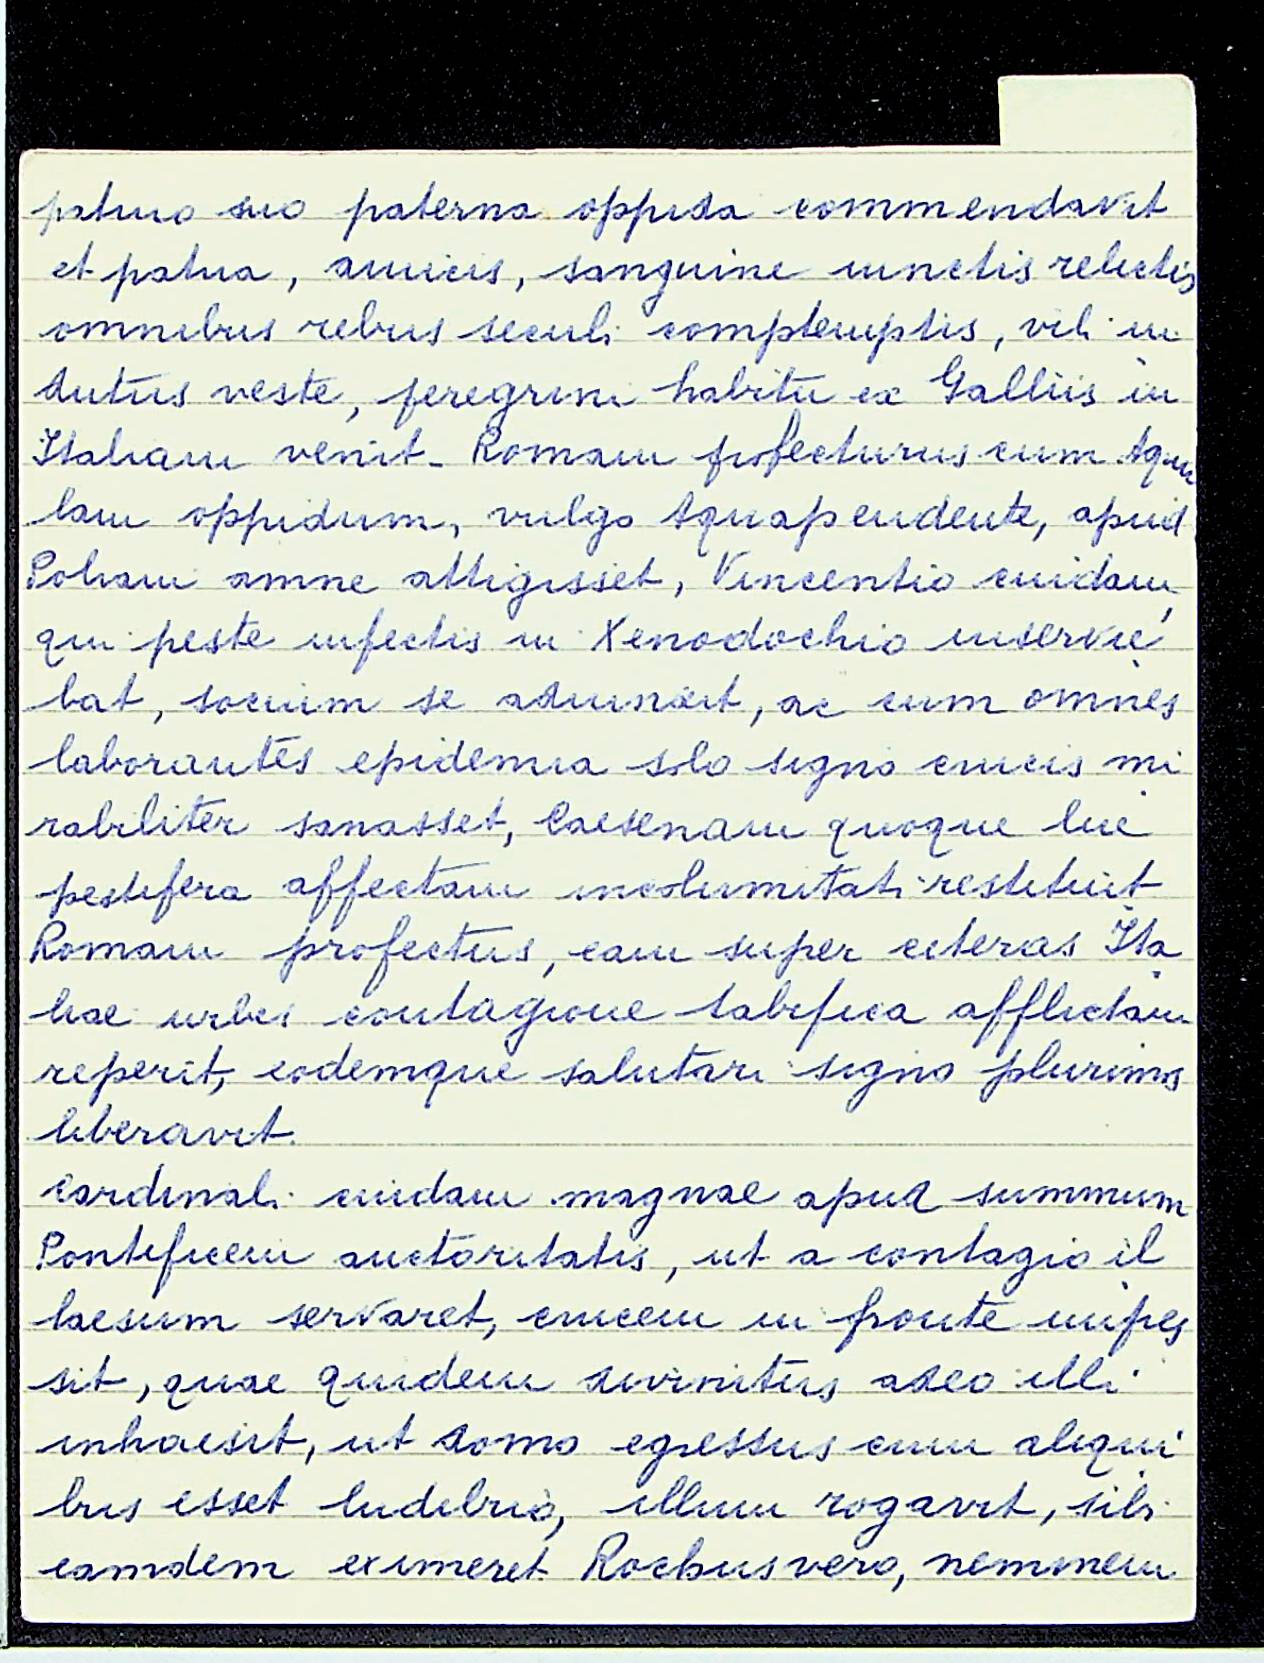 patruo suo paterna oppida commendavit
et patria, amicis, sanguine iunctis relictis
omnibus rebus seculi comptemptis, vili in
dutus veste, peregrini habitu ex Galliis in
Italiam venit. Romam profecturus cum Aqui
lam oppidum, vulgo Aquapendente, apud
Poliam amne attigisset, Vincentio cuidam,
qui peste infectis in Xenodochio inservie
bat, socium se adiunxit, ac cum omnes
laborantes epidemia solo signo crucis mi
rabiliter sanasset, Caesenam quoque lue
pestifera affectam incolumitati restituit
Romam profectus, eam super ceteras Ita
liae urbes contagione tabifica afflictam
reperit, eodemque salutari signo plurimos
liberavit.
Cardinali cuidam magnae apud summum
Pontificem auctoritatis, ut a contagio il
laesum servaret, crucem in fronte impres
sit, quae quidem divinitus adeo illi
inhaesit, ut domo egressus cum aliqui
bus esset ludibrio, illum rogavit, sibi
eamdem eximeret. Rochus vero, neminem